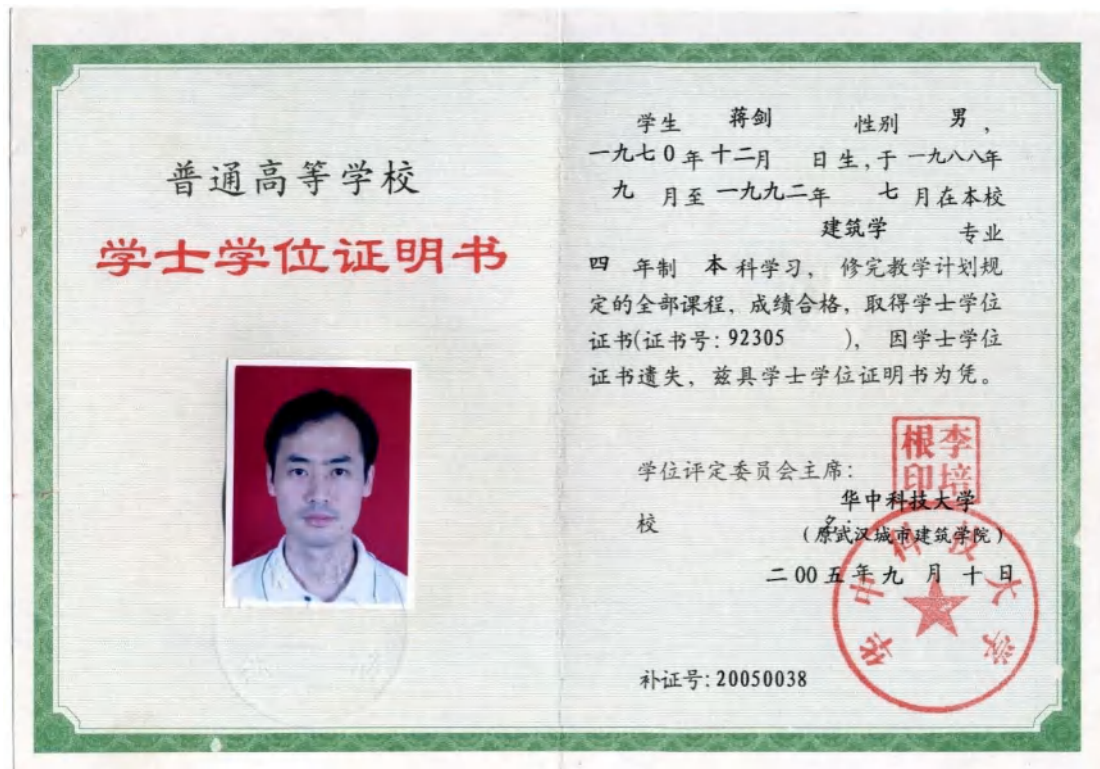 普通高等学校
学士学位证明书
学生 蒋剑 性别 男,
一九七0年十二月 日生,于一九八八年
九 月至一九九二年 七 月在本校
建筑学 专业
四 年制 本科学习, 修完教学计划规
定的全部课程, 成绩合格, 取得学士学位
证书(证书号: 92305 ), 因学士学位
证书遗失, 兹具学士学位证明书为凭。
李培根印
学位评定委员会主席:
华中科技大学
校 名:
(原武汉城市建筑学院)
二00五年九月十日
华中科技大学
补证号: 20050038